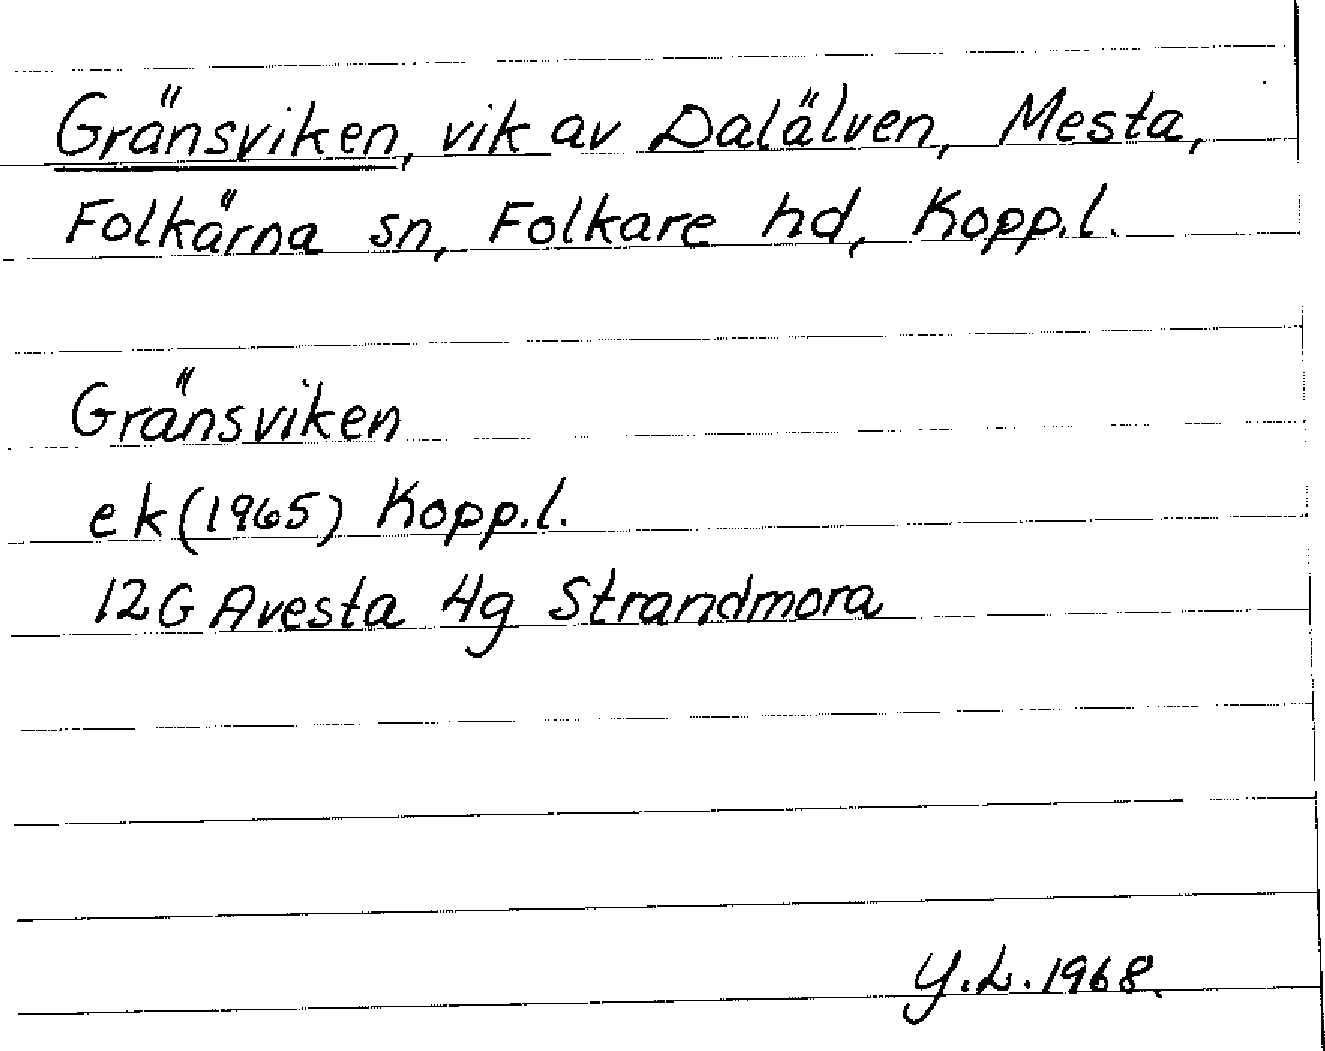 Gränsviken, vik av Dalälven, Mesta,
Folkärna sn, Folkare hd, Kopp.l.
Gränsviken
ek(1965) Kopp.l.
12G Avesta 4g Strandmora
Y.L. 1968.